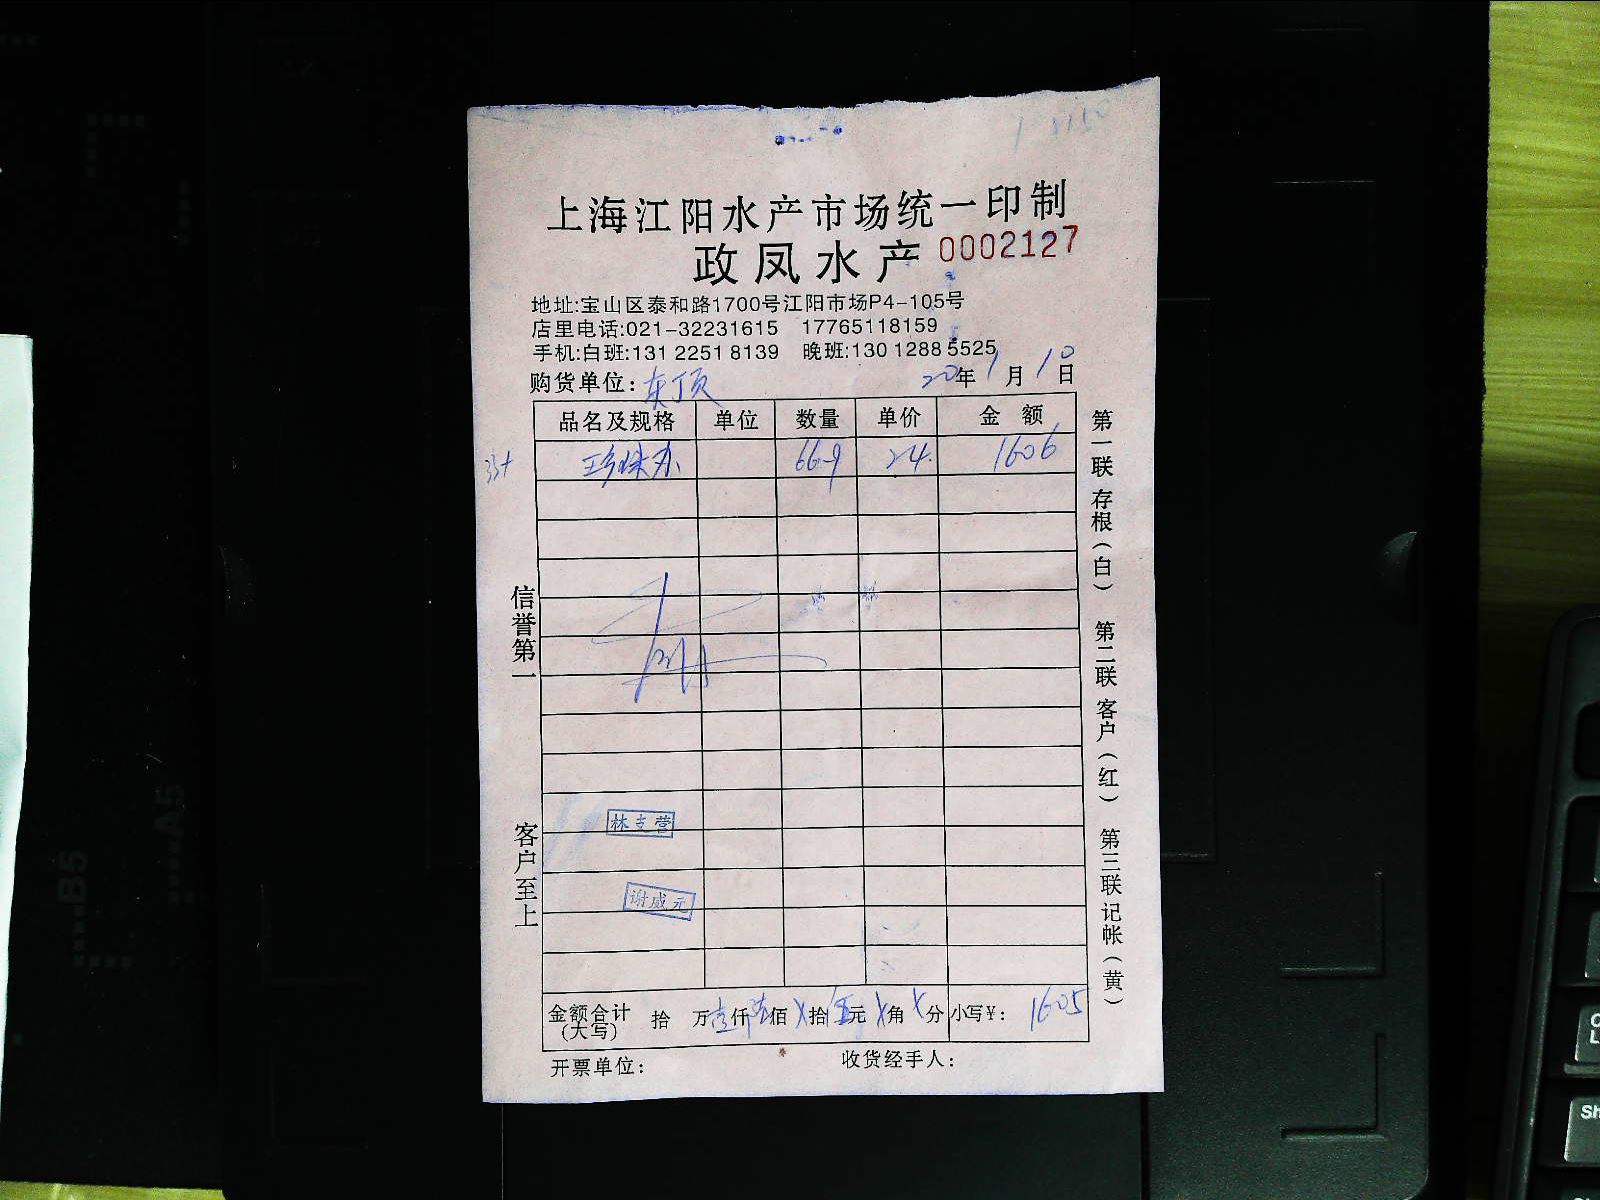 上海江阳水产市场统一印制
政凤水产 0002127
地址:宝山区泰和路1700号江阳市场P4-105号
店里电话:021-32231615 17765118159
手机:白班:131 2251 8139 晚班:130 1288 5525
购货单位: 东顶 20年 1月 10日
品名及规格 单位 数量 单价 金额
珍珠 66.9 24. 1606
信誉第一
客户至上
林支营
谢威元
第一联 存根(白) 第二联 客户(红) 第三联 记帐(黄)
金额合计(大写) 拾 万 壹仟 陆佰 X拾 伍元 X角 X分 小写¥: 1605
开票单位: 收货经手人:
B5
A5